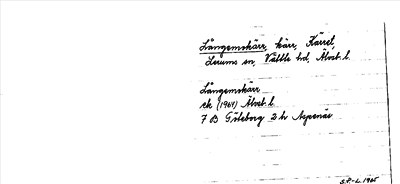 Långemskärr, kärr, Kärret,
Lerums sn, Vättle hd, Älvsb. l.
Långemskärr
ek (1964) Älvsb. l.
7 B Göteborg 2 h Aspenäs
S.P-L. 1965